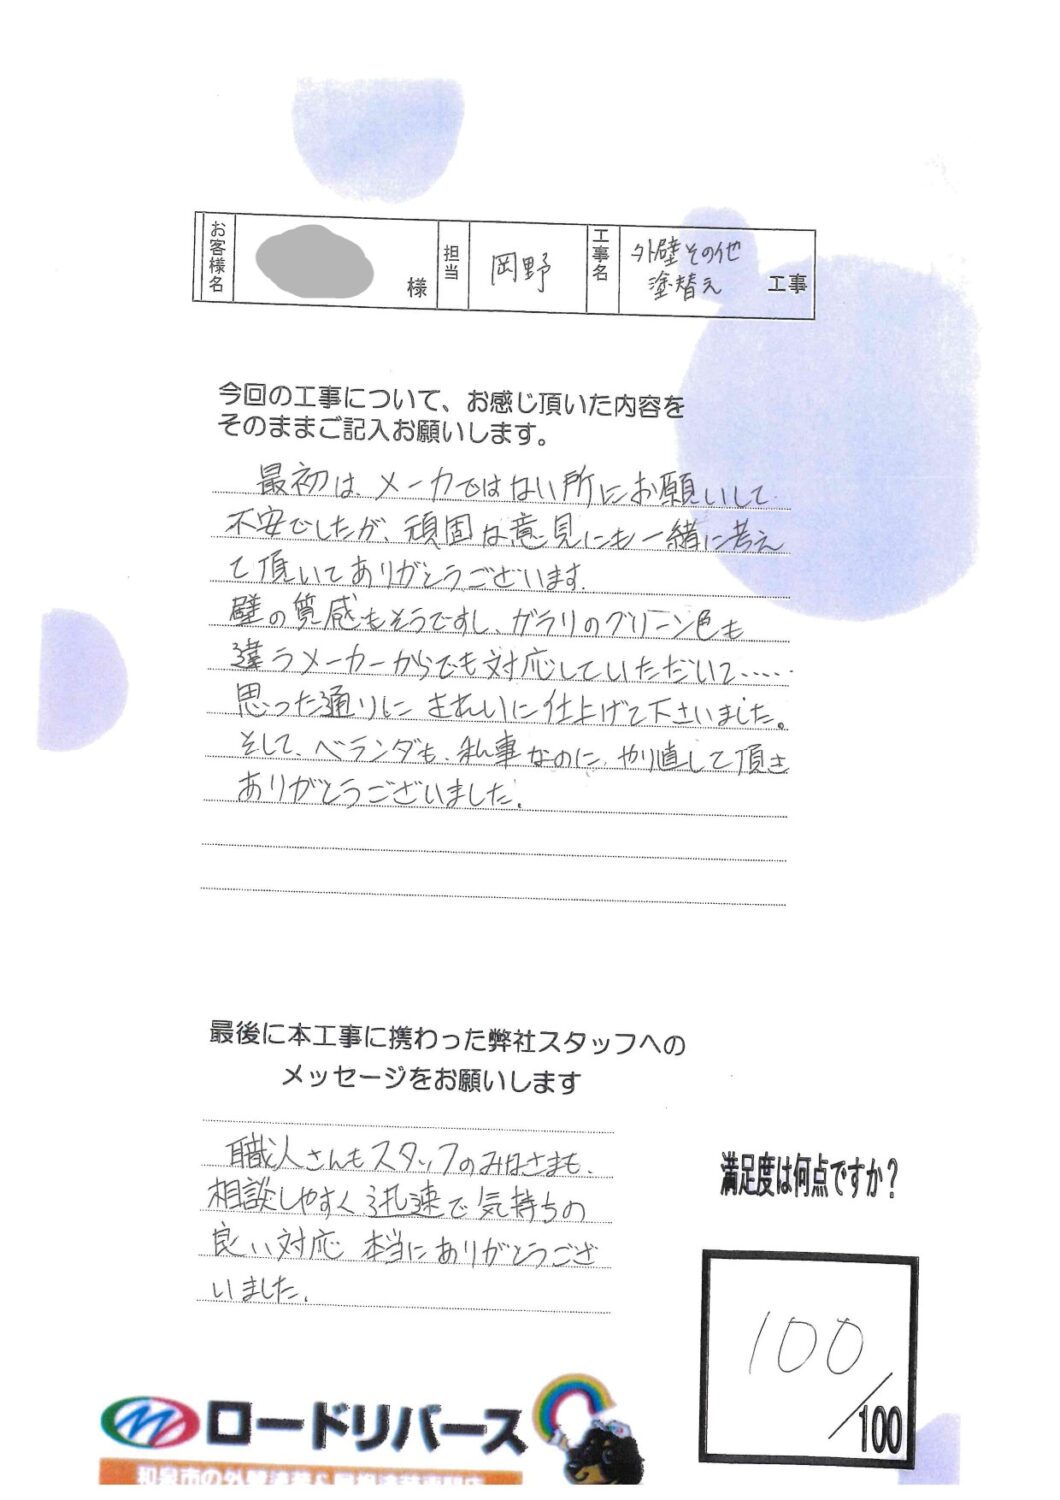 お客様名 様 担当 岡野 工事名 外壁その他 塗替え 工事
今回の工事について、お感じ頂いた内容を
そのままご記入お願いします。
最初は、メーカではない所にお願いして
不安でしたが、頑固な意見にも一緒に考え
て頂いてありがとうございます。
壁の質感もそうですし、ガラリのグリーン色も
違うメーカーからでも対応していただいて……
思った通りに きれいに仕上げて下さいました。
そして、ベランダも、私事なのに、やり直して頂き
ありがとうございました。
最後に本工事に携わった弊社スタッフへの
メッセージをお願いします
職人さんもスタッフのみなさまも、
相談しやすく 迅速で気持ちの
良い対応 本当にありがとうござ
いました。
満足度は何点ですか？
100/100
ロードリバース
和泉市の外壁塗装&屋根塗装専門店